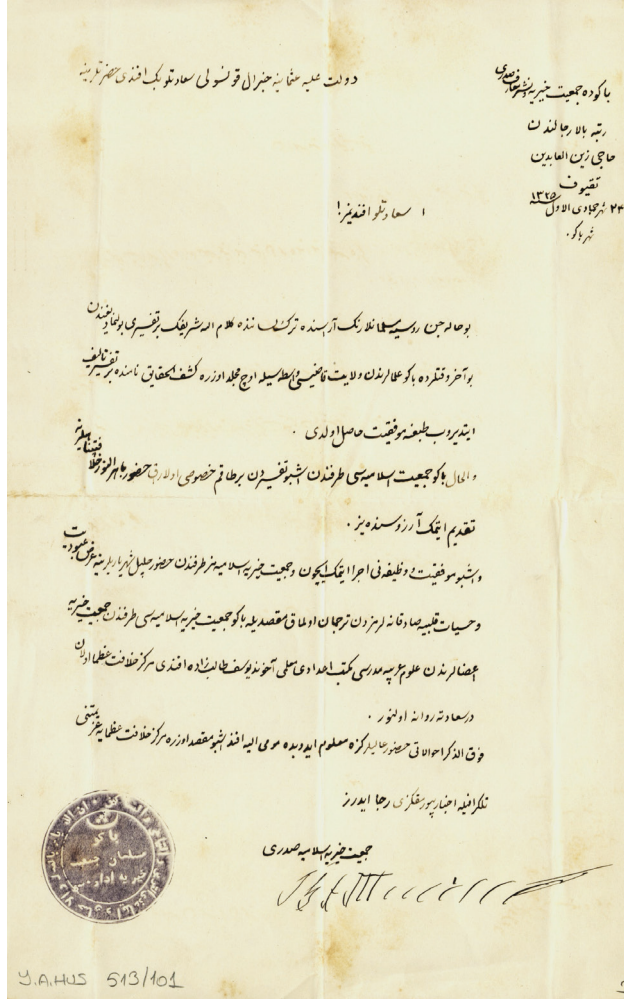 دولت علیه عثمانیه جنرال قونسولی سعادتلو بک افندی حضرتلرینه
باکوده جمعیت خیریه و نشر معارف صدری
رتبه بالا رجالندن
حاجی زین العابدین
تقیوف
۲۴ شهر جمادی الاول سنه ۱۳۲۵
شهر باکو.
سعادتلو افندیمز!
بو حاله جن روسیه مسلمانلارنک آراسنده ترک لساننده کلام الله شریفک بر تفسیری بولنمادیغندن
بو آخر وقتلرده باکو علمالرندن ولایت قاضیسی واسطه سیله اوچ مجلد اوزره کشف الحقایق نامنده بر تفسیر تألیف
ایتدیروب طبعنه موفقیت حاصل اولدی .
و الحال باکو جمعیت اسلامیه سی طرفندن اشبو تفسیردن بر طاقم خصوصی اولارق حضور باهر النور خلافتپناهیلرینه
تقدیم ایتمک آرزوسنده یز .
و اشبو موفقیت و وظیفه نی اجرا ایتمک ایچون و جمعیت خیریه اسلامیه مز طرفندن حضور جلیل شهریاریلرینه عرض عبودیت
و حسیات قلبیه صادقانه لرمزدن ترجمان اولماق مقصدیله باکو جمعیت خیریه اسلامیه سی طرفندن جمعیت خیریه
اعضالرندن علوم عربیه مدرسی مکتب اعدادی معلمی آخوند یوسف طالب زاده افندی مرکز خلافت عظما اولان
درسعادته روانه اولنور .
فوق الذکر احوالاتی حضور عالیلرکزه معلوم ایدوبده مومی الیه افندی اشبو مقصد اوزره مرکز خلافت عظمایه عزیمتنی
تلگرافیله اخبار بیورمقلگزی رجا ایدرز
جمعیت خیریه اسلامیه صدری
باکو
مسلمان جمعیت
خیریه اداره سی
Y.A.HUS 513/101